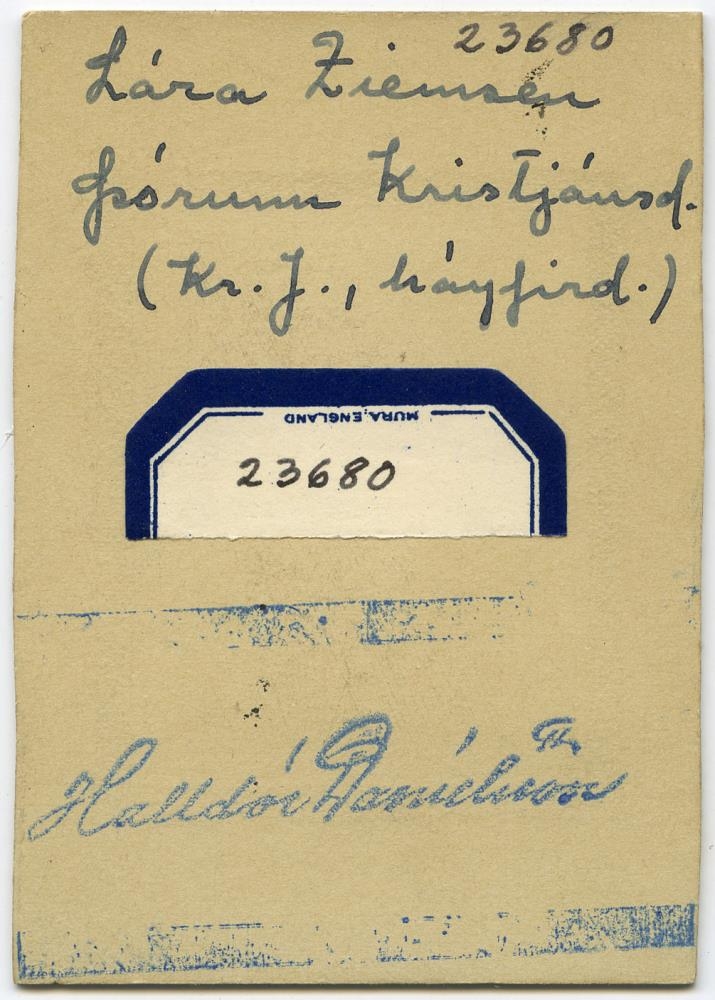 23680
Lára Ziemsen
Þórunn Kristjánsd.
(Kr. J., háyfird.)
MURA, ENGLAND
23680
Halldór Daníelsson